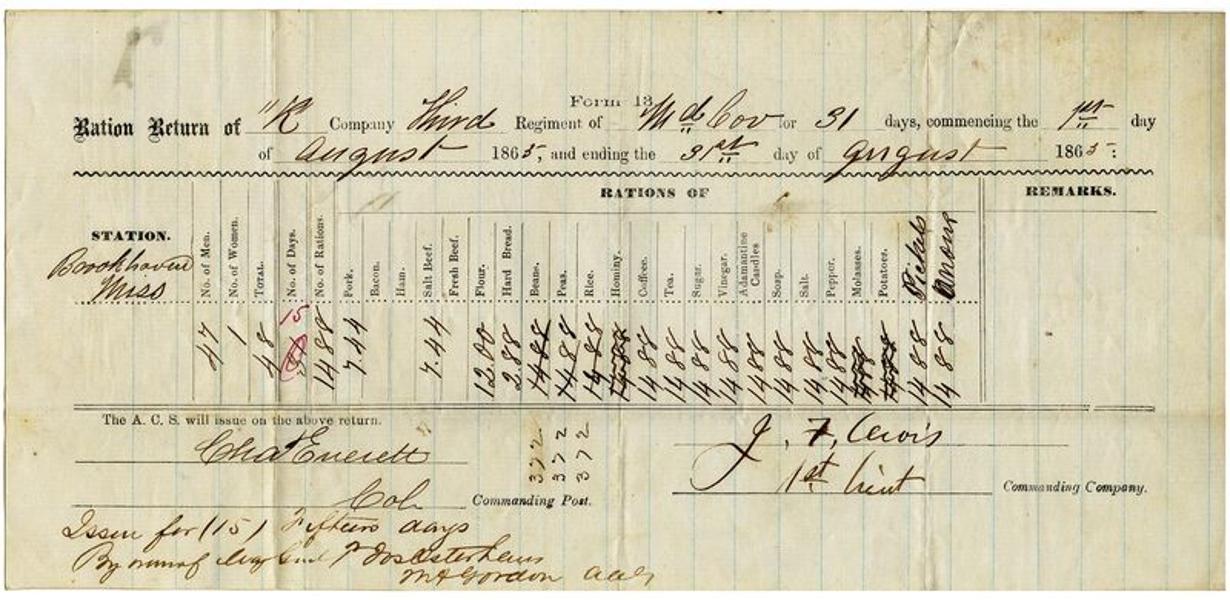 Form 13
Ration Return of "K" Company Third Regiment of Md Cav for 31 days, commencing the 1st day
of August 1865, and ending the 31st day of August 1865:
RATIONS OF
REMARKS.
STATION.
No. of Men. No. of Women. Total. No. of Days. No. of Rations. Pork. Bacon. Ham. Salt Beef. Fresh Beef. Flour. Hard Bread. Beans. Peas. Rice. Hominy. Coffee. Tea. Sugar. Vinegar. Adamantine Candles Soap. Salt. Pepper. Molasses. Potatoes. Pickels
Brookhaven
Miss
15
47 1 48 31 1488 744 744 1200 288 1488 1488 1488 1488 1488 1488 1488 1488 1488 1488 1488 1488 1488 1488 1488 1488
The A. C. S. will issue on the above return.
372 372 372
Chas Everett
J. F. Lewis
Col Commanding Post.
1st Lieut Commanding Company.
Issue for (15) Fifteen days
By of Maj Genl P Jos Osterhaus
Gordon AAG